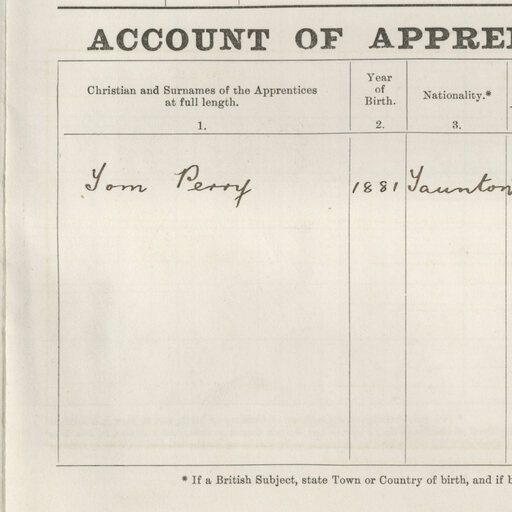 ACCOUNT OF
Christian and Surnames of the Apprentices
at full length.
Year
of
Birth.
Nationality.*
1.
2.
3.
Tom Perry
1881
Taunton
* If a British Subject, state Town or Country of birth, and if